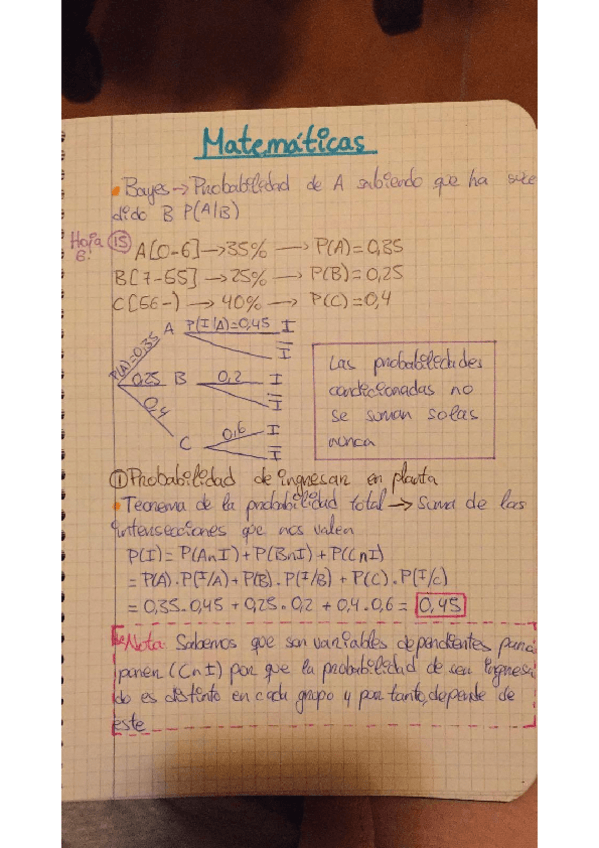 Matemáticas
• Bayes → Probabilidad de A sabiendo que ha suce
dido B P(A/B)
Hoja B: 15 A[0-6] → 35% → P(A) = 0,35
B[7-55] → 25% → P(B) = 0,25
C[56-) → 40% → P(C) = 0,4
P(A)=0,35 A P(I/A)=0,45 I
I̅
0,25 B 0,2 I
I̅
0,4 C 0,6 I
I̅
Las probabilidades
condicionadas no
se suman solas
nunca
① Probabilidad de ingresar en planta
• Teorema de la probabilidad total → Suma de las
intersecciones que nos valen
P(I) = P(A∩I) + P(B∩I) + P(C∩I)
= P(A) · P(I/A) + P(B) · P(I/B) + P(C) · P(I/C)
= 0,35 · 0,45 + 0,25 · 0,2 + 0,4 · 0,6 = 0,45
Nota: Sabemos que son variables dependientes para
poner (C∩I) por que la probabilidad de ser ingresa
do es distinto en cada grupo y por tanto, depende de
este